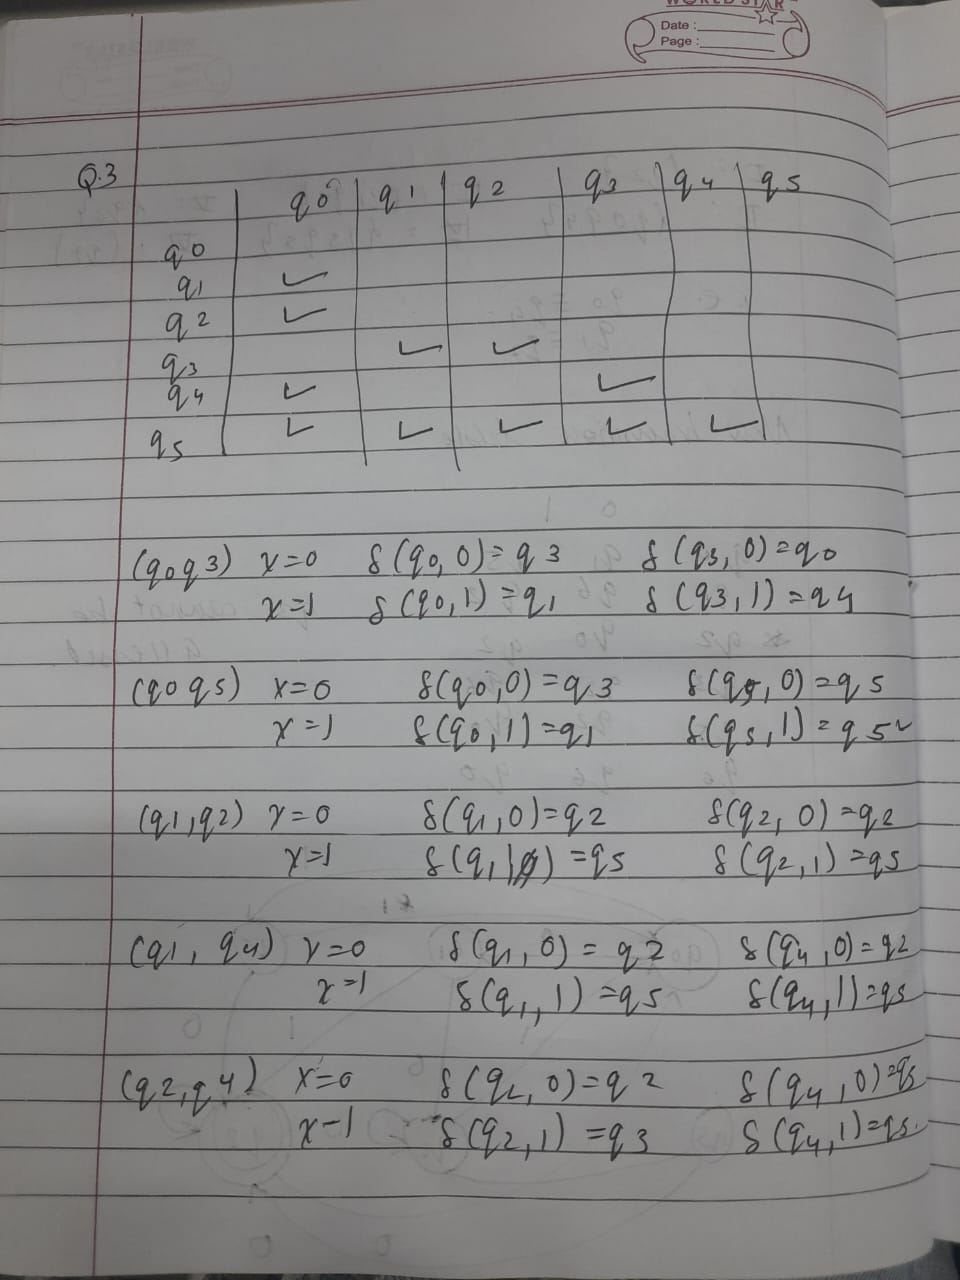 WORLD STAR
Date :
Page :
Q.3
q0 q1 q2 q3 q4 q5
q0
q1 ✓
q2 ✓
q3 ✓ ✓
q4 ✓ ✓
q5 ✓ ✓ ✓ ✓ ✓
(q0q3) x=0 δ(q0,0)=q3 δ(q3,0)=q0
x=1 δ(q0,1)=q1 δ(q3,1)=q4
(q0q5) x=0 δ(q0,0)=q3 δ(q5,0)=q5
x=1 δ(q0,1)=q1 δ(q5,1)=q5
(q1,q2) x=0 δ(q1,0)=q2 δ(q2,0)=q2
x=1 δ(q1,1)=q5 δ(q2,1)=q5
(q1,q4) x=0 δ(q1,0)=q2 δ(q4,0)=q2
x=1 δ(q1,1)=q5 δ(q4,1)=q5
(q2,q4) x=0 δ(q2,0)=q2 δ(q4,0)=
x-1 δ(q2,1)=q3 δ(q4,1)=q5.